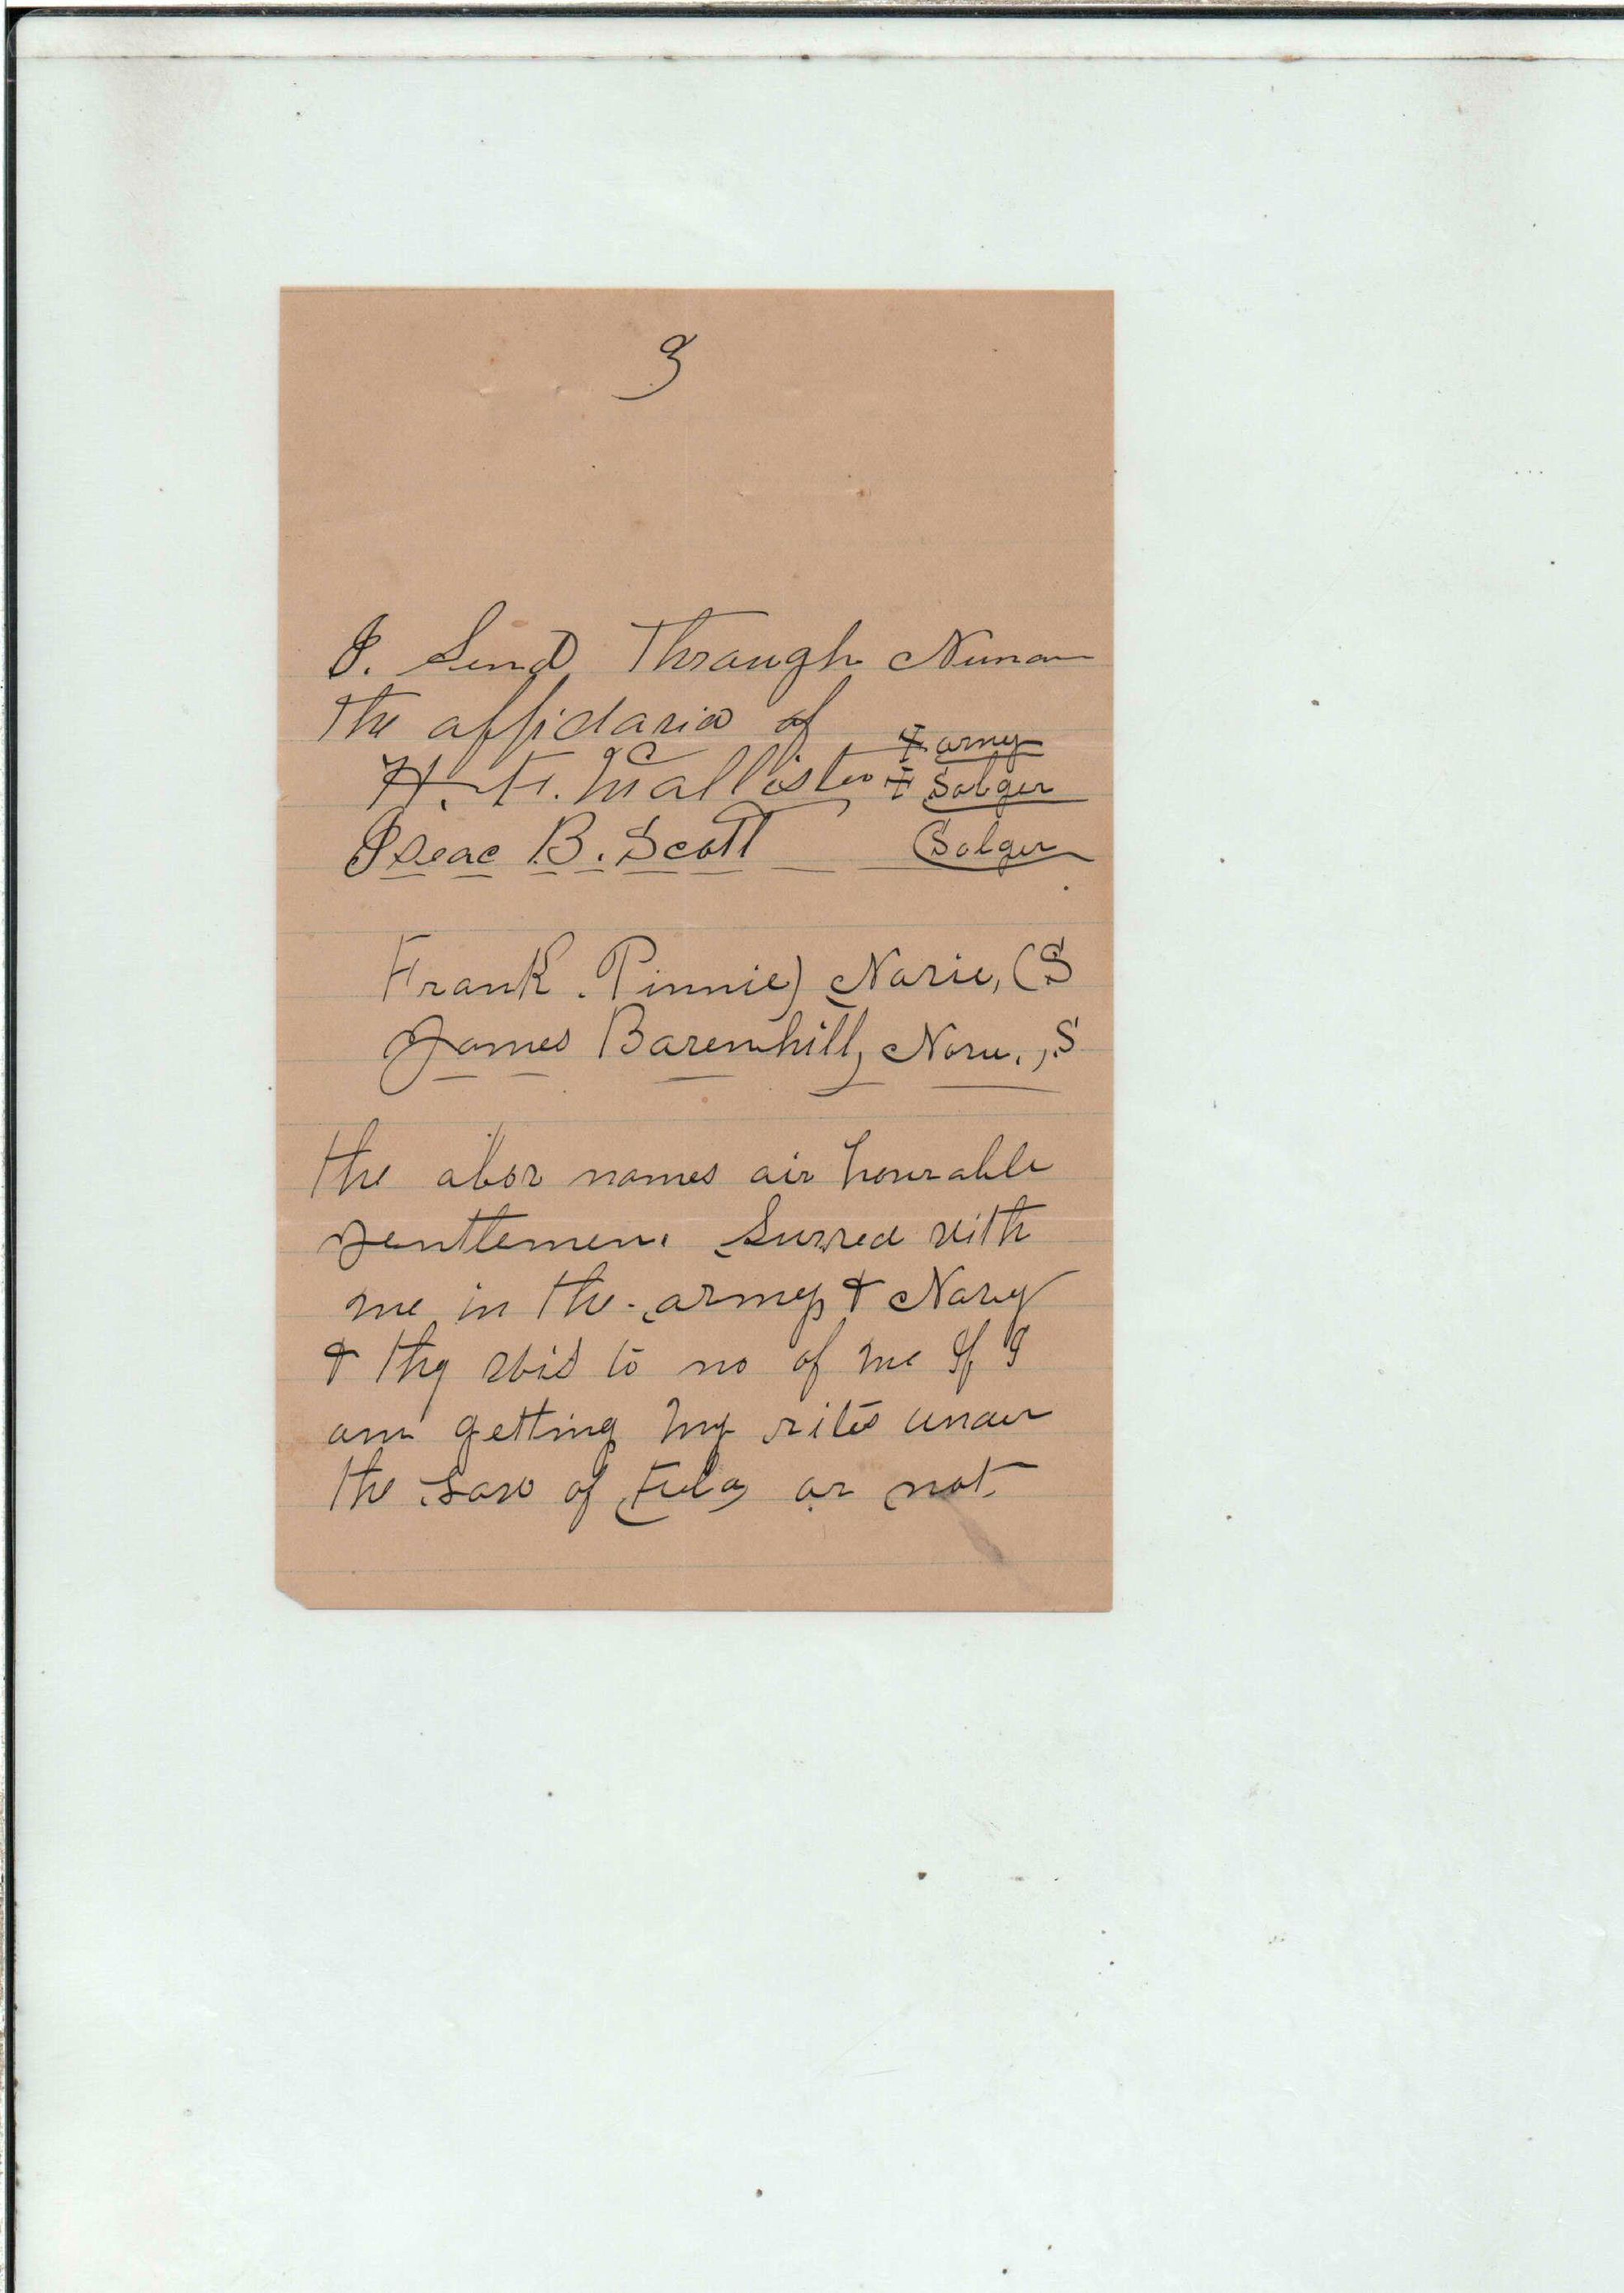 3
I. Send Through Numan
the affidavid of
+ army
H. H. McCallister + Solger
Iseac B. Scott Solger
Frank. Pinnie) Navie, (S
James Barenhill, Nave., S
the abov names air honrable
gentlemen. Surved with
me in the army & Navy
& thy to no of me If I
am getting my rites under
the Law of or not.